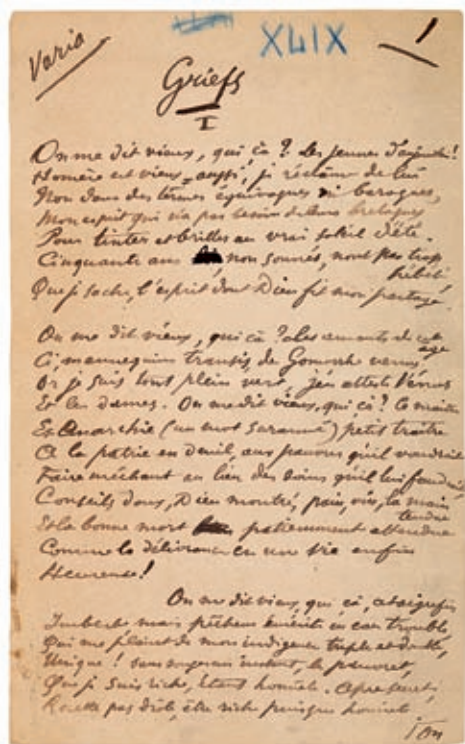 Varia
XLIX
1
Griefs
I
On me dit vieux, qui çà ? Les jeunes d'aujourd'hui !
Homère est vieux aussi, je réclame de lui
Non dans des termes équivoques ni baroques,
Mon esprit qui n'a pas besoin de leurs breloques
Pour tinter et briller au vrai soleil d'été.
Cinquante ans non sonnés, n'ont pas trop
hébété,
Que je sache, l'esprit dont Dieu fit mon partage.
On me dit vieux, qui çà ? Les amants de cet
âge
Ci, mannequins transis, de Gomorrhe venus,
Or je suis tout plein vert, j'en atteste Vénus
Et les dames. On me dit vieux, qui çà ? Ce maître
Es Anarchie (un mot suranné) petit traître
A la patrie en deuil, aux pauvres qu'il voudrait
Faire méchant au lieu des soins qu'il lui faudrait,
Conseils doux, Dieu montré, pain, vin, la main
tendue
Et la bonne mort patiemment attendue
Comme la délivrance en une vie enfin
Heureuse !
On me dit vieux, qui çà,
Imberbe mais pêcheur émérite en eau trouble,
Qui me plaint de mon indigence triple et double,
Unique ! sans
Que je suis riche, étant honnête.
pas drôle, être riche puisque honnête